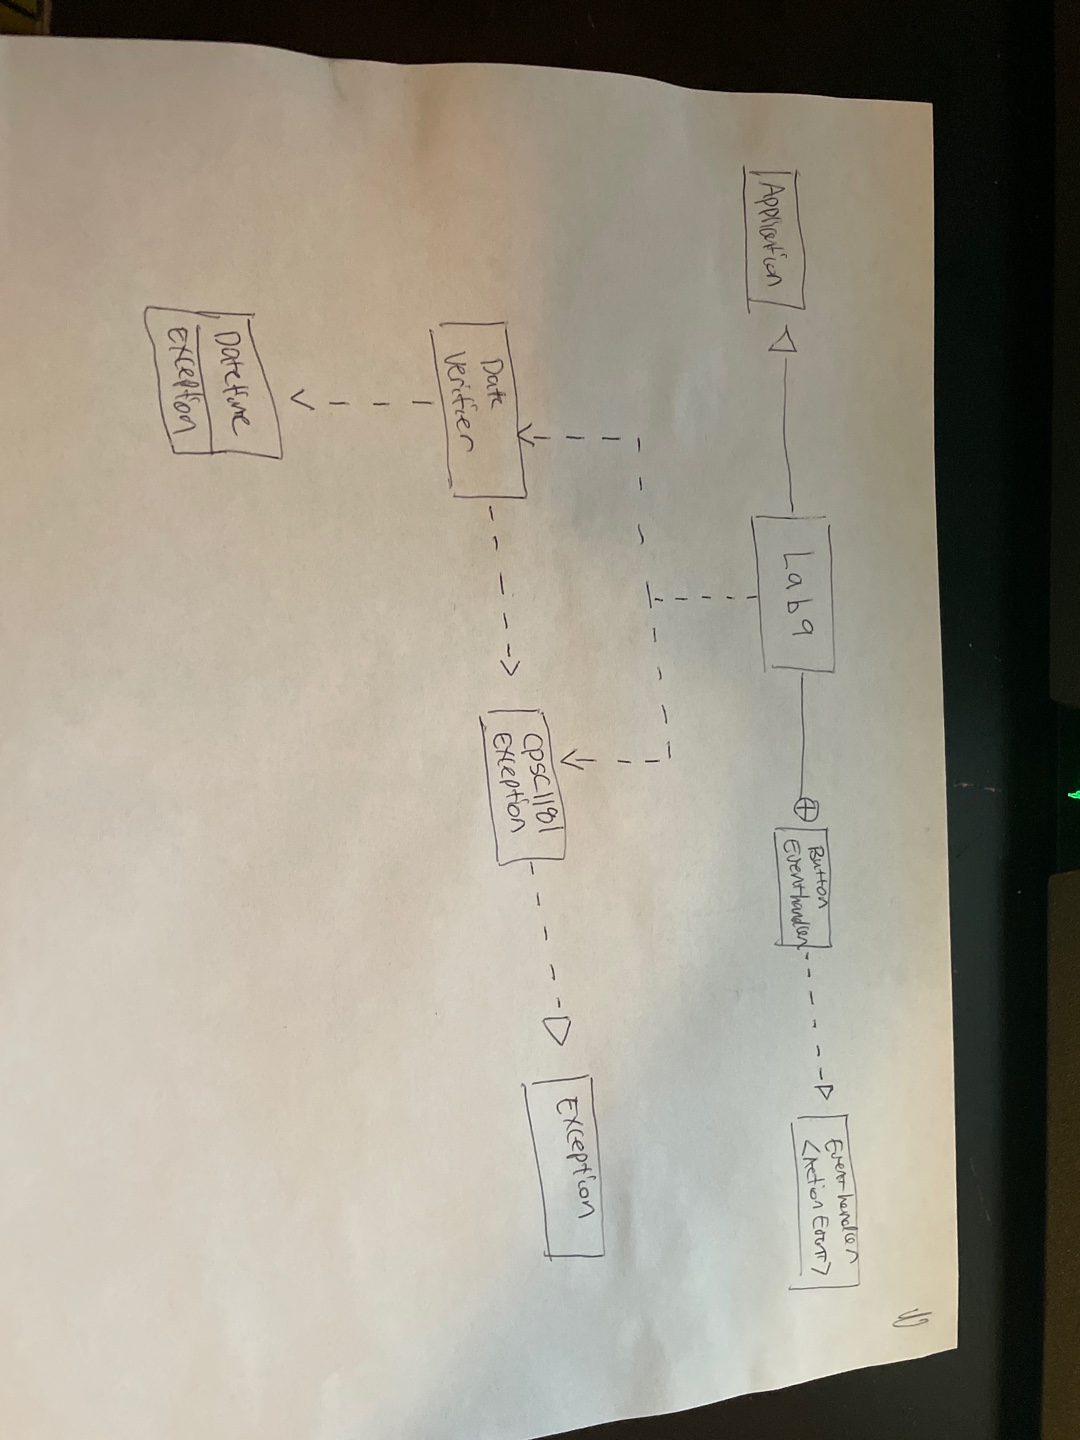 Application
Lab9
Button
Eventhandler
Eventhandler
<Action Event>
Date
Verifier
CPSC1181
Exception
Exception
Datetime
Exception